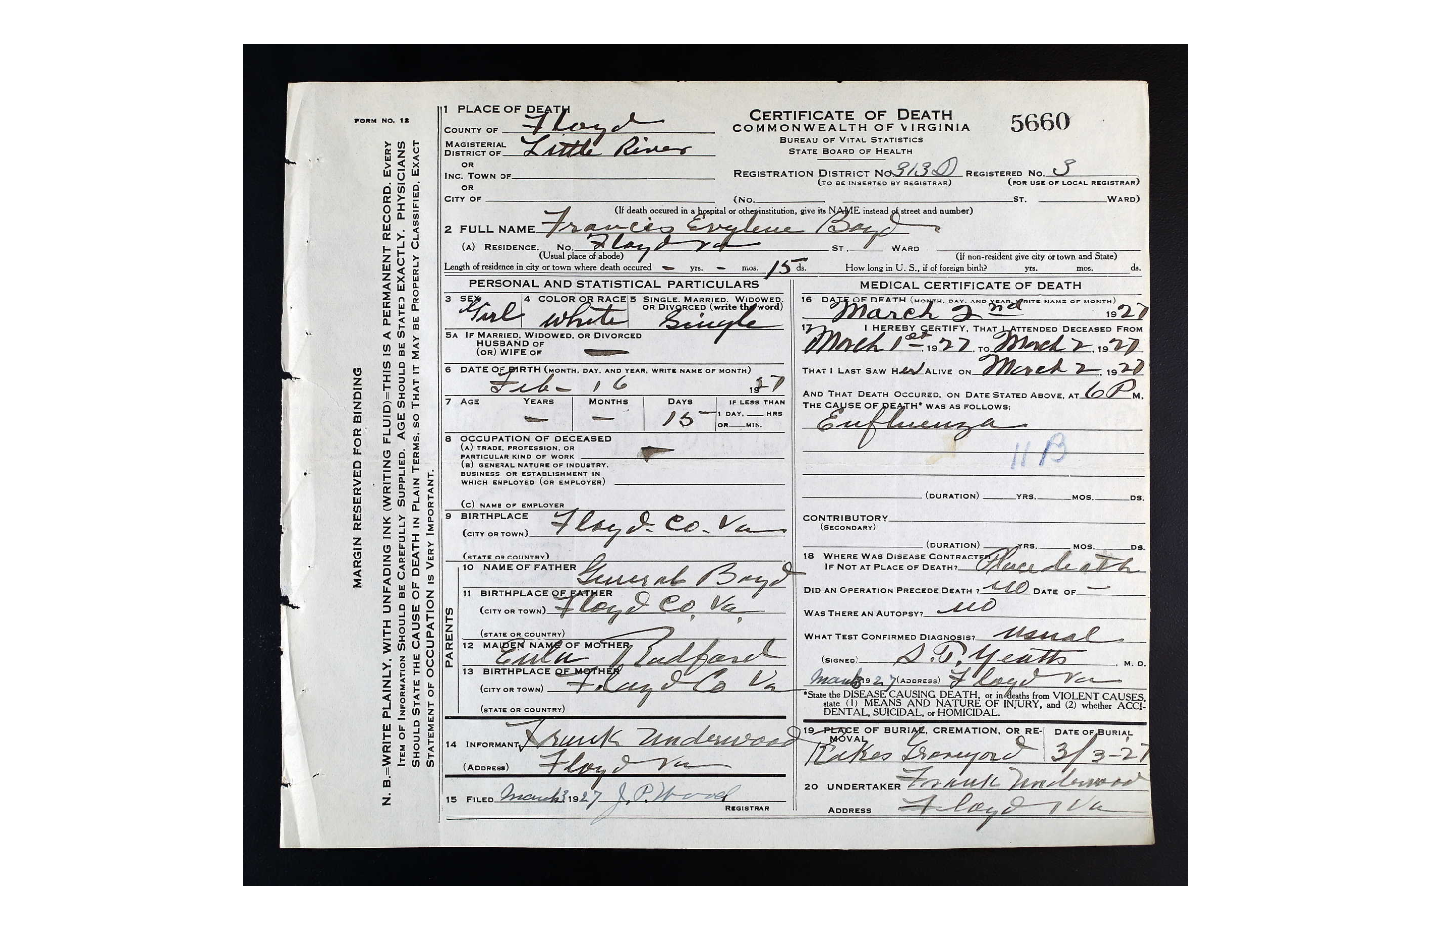 FORM NO. 12
MARGIN RESERVED FOR BINDING
N. B.—WRITE PLAINLY, WITH UNFADING INK (WRITING FLUID)—THIS IS A PERMANENT RECORD. EVERY
ITEM OF INFORMATION SHOULD BE CAREFULLY SUPPLIED. AGE SHOULD BE STATED EXACTLY. PHYSICIANS
SHOULD STATE THE CAUSE OF DEATH IN PLAIN TERMS, SO THAT IT MAY BE PROPERLY CLASSIFIED. EXACT
STATEMENT OF OCCUPATION IS VERY IMPORTANT.
1 PLACE OF DEATH
COUNTY OF Floyd
MAGISTERIAL DISTRICT OF Little River
OR
INC. TOWN OF
OR
CITY OF
CERTIFICATE OF DEATH
COMMONWEALTH OF VIRGINIA
BUREAU OF VITAL STATISTICS
STATE BOARD OF HEALTH
5660
REGISTRATION DISTRICT NO. 313D REGISTERED NO. 3
(TO BE INSERTED BY REGISTRAR) (FOR USE OF LOCAL REGISTRAR)
(NO. ST. WARD)
(If death occured in a hospital or other institution, give its NAME instead of street and number)
2 FULL NAME Francis Evylene Boyd
(A) RESIDENCE. NO. Floyd Va ST., WARD
(Usual place of abode) (If non-resident give city or town and State)
Length of residence in city or town where death occured – yrs. – mos. 15 ds. How long in U. S., if of foreign birth? yrs. mos. ds.
PERSONAL AND STATISTICAL PARTICULARS
3 SEX Girl
4 COLOR OR RACE White
5 SINGLE, MARRIED, WIDOWED, OR DIVORCED (write the word) Single
5A IF MARRIED, WIDOWED, OR DIVORCED
HUSBAND OF
(OR) WIFE OF –
6 DATE OF BIRTH (MONTH, DAY, AND YEAR, WRITE NAME OF MONTH)
Feb – 16 1927
7 AGE YEARS MONTHS DAYS IF LESS THAN
– – 15 – 1 DAY, HRS
OR MIN.
8 OCCUPATION OF DECEASED
(A) TRADE, PROFESSION, OR
PARTICULAR KIND OF WORK –
(B) GENERAL NATURE OF INDUSTRY,
BUSINESS OR ESTABLISHMENT IN
WHICH EMPLOYED (OR EMPLOYER)
(C) NAME OF EMPLOYER
9 BIRTHPLACE Floyd. Co. Va
(CITY OR TOWN)
(STATE OR COUNTRY)
PARENTS
10 NAME OF FATHER General Boyd
11 BIRTHPLACE OF FATHER
(CITY OR TOWN) Floyd Co. Va.
(STATE OR COUNTRY)
12 MAIDEN NAME OF MOTHER Eula Radford
13 BIRTHPLACE OF MOTHER
(CITY OR TOWN) Floyd Co Va
(STATE OR COUNTRY)
14 INFORMANT Frank Underwood
(ADDRESS) Floyd Va
15 FILED March 3 1927 J. P. Wood
REGISTRAR
MEDICAL CERTIFICATE OF DEATH
16 DATE OF DEATH (MONTH, DAY, AND YEAR, WRITE NAME OF MONTH)
March 2nd 1927
17 I HEREBY CERTIFY, THAT I ATTENDED DECEASED FROM
March 1st, 1927, TO March 2, 1927
THAT I LAST SAW Her ALIVE ON March 2, 1927
AND THAT DEATH OCCURED, ON DATE STATED ABOVE, AT 6 P M.
THE CAUSE OF DEATH* WAS AS FOLLOWS:
Enfluenza
11 B
(DURATION) YRS. MOS. DS.
CONTRIBUTORY
(SECONDARY)
(DURATION) YRS. MOS. DS.
18 WHERE WAS DISEASE CONTRACTED
IF NOT AT PLACE OF DEATH? Place death
DID AN OPERATION PRECEDE DEATH? no DATE OF –
WAS THERE AN AUTOPSY? no
WHAT TEST CONFIRMED DIAGNOSIS? usual
(SIGNED) M. D.
March 1927 (ADDRESS) Floyd Va
*State the DISEASE CAUSING DEATH, or in deaths from VIOLENT CAUSES,
state (1) MEANS AND NATURE OF INJURY, and (2) whether ACCI-
DENTAL, SUICIDAL, or HOMICIDAL.
19 PLACE OF BURIAL, CREMATION, OR RE-MOVAL DATE OF BURIAL
Graveyard 3/3-27
20 UNDERTAKER Frank Underwood
ADDRESS Floyd Va